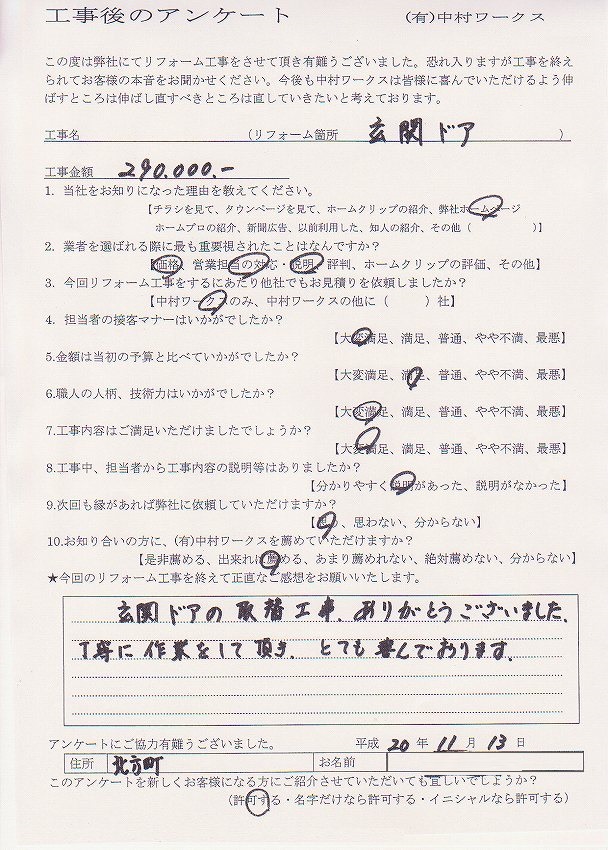 工事後のアンケート (有)中村ワークス
この度は弊社にてリフォーム工事をさせて頂き有難うございました。恐れ入りますが工事を終え
られてお客様の本音をお聞かせください。今後も中村ワークスは皆様に喜んでいただけるよう伸
ばすところは伸ばし直すべきところは直していきたいと考えております。
工事名 (リフォーム箇所 玄関ドア )
工事金額 290.000.-
1. 当社をお知りになった理由を教えてください。
【チラシを見て、タウンページを見て、ホームクリップの紹介、弊社ホームページ
ホームプロの紹介、新聞広告、以前利用した、知人の紹介、その他( )】
2. 業者を選ばれる際に最も重要視されたことはなんですか?
【価格、営業担当の対応・説明、評判、ホームクリップの評価、その他】
3. 今回リフォーム工事をするにあたり他社でもお見積りを依頼しましたか?
【中村ワークスのみ、中村ワークスの他に( )社】
4. 担当者の接客マナーはいかがでしたか?
【大変満足、満足、普通、やや不満、最悪】
5.金額は当初の予算と比べていかがでしたか?
【大変満足、満足、普通、やや不満、最悪】
6.職人の人柄、技術力はいかがでしたか?
【大変満足、満足、普通、やや不満、最悪】
7.工事内容はご満足いただけましたでしょうか?
【大変満足、満足、普通、やや不満、最悪】
8.工事中、担当者から工事内容の説明等はありましたか?
【分かりやすく説明があった、説明がなかった】
9.次回も縁があれば弊社に依頼していただけますか?
【思う、思わない、分からない】
10.お知り合いの方に、(有)中村ワークスを薦めていただけますか?
【是非薦める、出来れば薦める、あまり薦めれない、絶対薦めない、分からない】
★今回のリフォーム工事を終えて正直なご感想をお願いいたします。
玄関ドアの取替工事、ありがとうございました。
丁寧に作業をして頂き、とても喜んでおります。
アンケートにご協力有難うございました。 平成 20 年 11 月 13 日
住所 北方町 お名前
このアンケートを新しくお客様になる方にご紹介させていただいても宜しいでしょうか?
(許可する・名字だけなら許可する・イニシャルなら許可する)